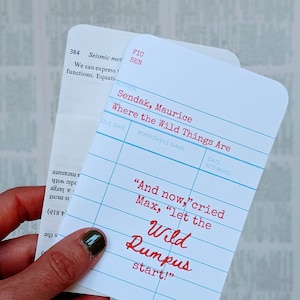 384 Seismic
We can express
functions. Equatio
FIC
SEN
Sendak, Maurice
Where the Wild Things Are
DATE DUE
BORROWER'S NAME
DATE
"And now," cried
Max, "let the
Wild
Rumpus
start!"